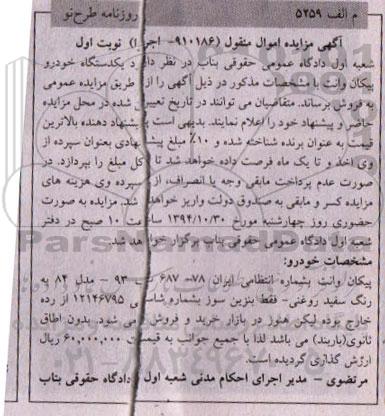 م الف ۵۲۵۹
روزنامه طرح‌نو
آگهی مزایده اموال منقول (۹۱۰۱۸۶- اجرا) نوبت اول
شعبه اول دادگاه عمومی حقوقی بناب در نظر دارد یکدستگاه خودرو
پیکان وانت با مشخصات مذکور در ذیل آگهی را از طریق مزایده عمومی
به فروش برساند. متقاضیان می توانند در تاریخ تعیین شده در محل مزایده
حاضر و پیشنهاد خود را اعلام نمایند. بدیهی است پیشنهاد دهنده بالاترین
قیمت به عنوان برنده شناخته شده و ۱۰٪ مبلغ پیشنهادی بعنوان سپرده از
وی اخذ و تا یک ماه فرصت داده خواهد شد تا کل مبلغ را بپردازد. در
صورت عدم پرداخت مابقی وجه یا انصراف، از سپرده وی هزینه های
مزایده کسر و مابقی به صندوق دولت واریز خواهد شد. مزایده به صورت
حضوری روز چهارشنبه مورخ ۱۳۹۴/۱۰/۳۰ ساعت ۱۰ صبح در دفتر
شعبه اول دادگاه عمومی حقوقی بناب برگزار خواهد شد.
مشخصات خودرو:
پیکان وانت بشماره انتظامی ایران ۷۸- ۶۸۷ ۹۳ – مدل ۸۴ به
رنگ سفید روغنی- فقط بنزین سوز بشماره شاسی ۱۲۱۴۶۷۹۵ از رده
خارج بوده لیکن هنوز در بازار خرید و فروش می شود. بدون اطاق
ثانوی(باربند) می باشد لذا با جمیع جوانب به قیمت ۶۰,۰۰۰,۰۰۰ ریال
ارزش گذاری گردیده است.
مرتضوی – مدیر اجرای احکام مدنی شعبه اول دادگاه حقوقی بناب
ParsNamadData
۰۲۱-۸۸۳۴۹۶۷۰